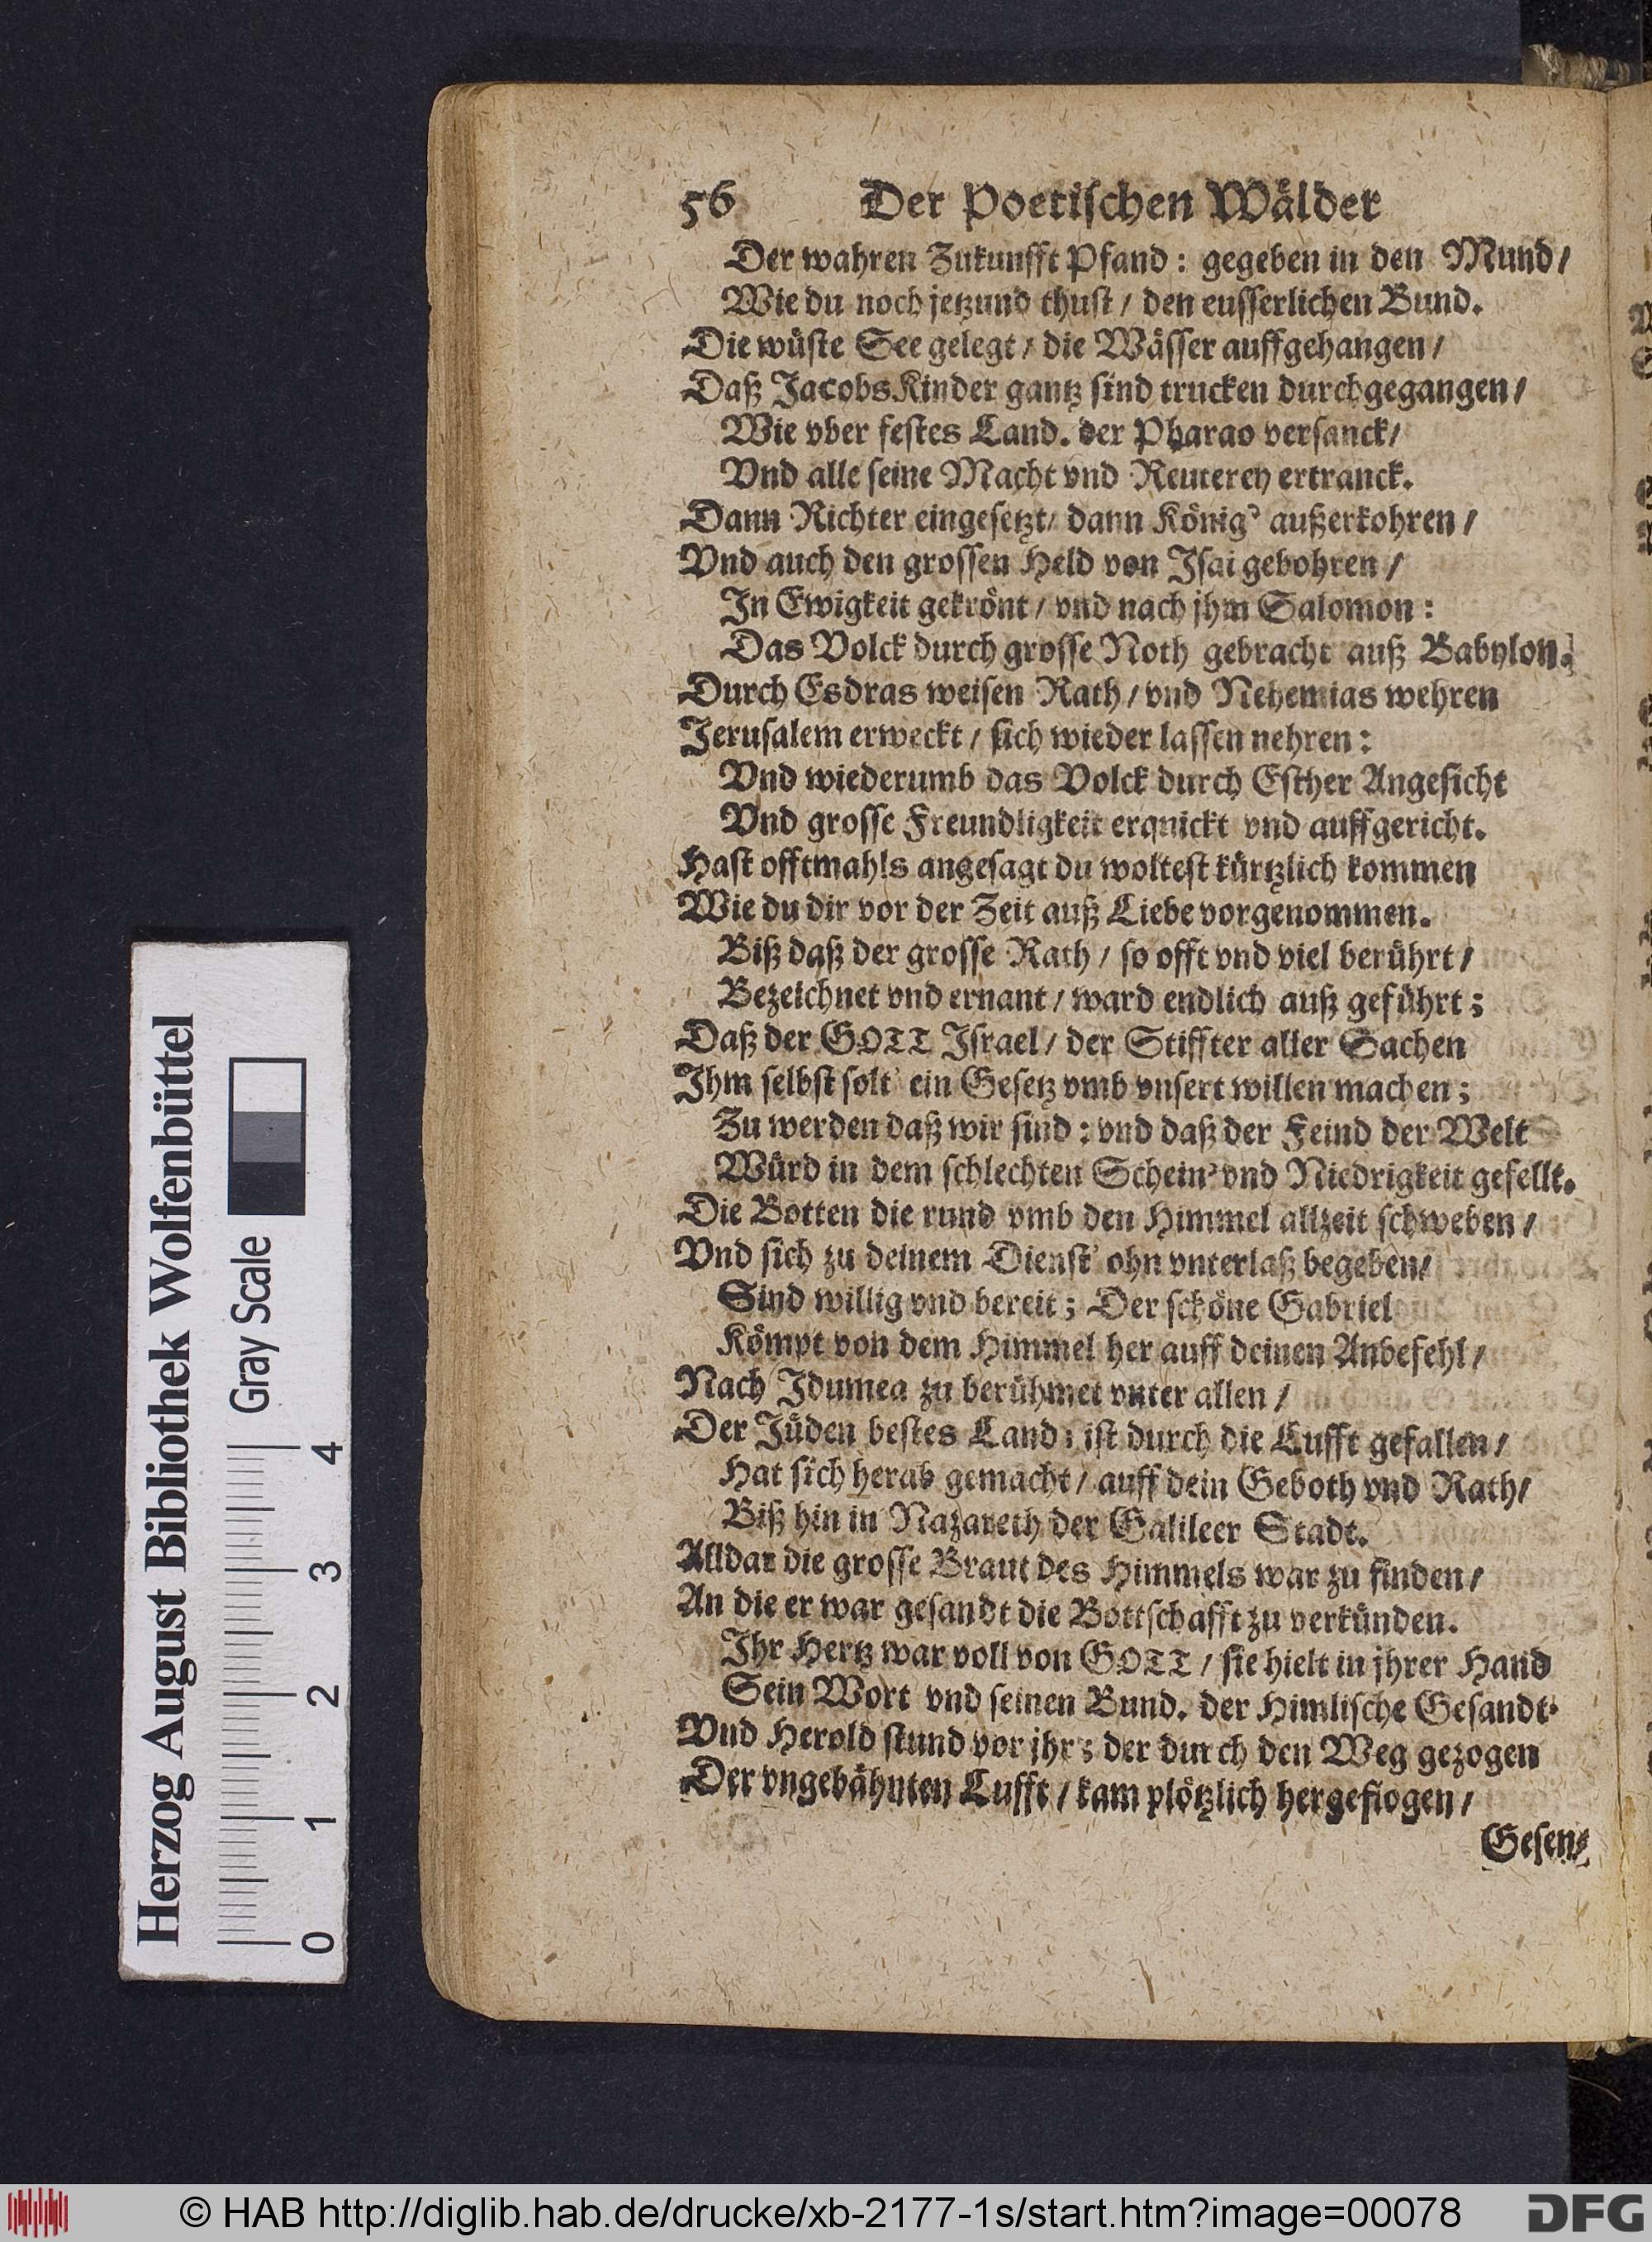 56 Der Poetischen Wälder
Der wahren Zukunfft Pfand: gegeben in den Mund/
Wie du noch jetzund thust/ den eusserlichen Bund.
Die wüste See gelegt/ die Wässer auffgehangen/
Daß Jacobs Kinder gantz sind trucken durchgegangen/
Wie vber festes Land. der Pharao versanck/
Vnd alle seine Macht vnd Reuterey ertranck.
Dann Richter eingesetzt/ dann König' außerkohren/
Vnd auch den grossen Held von Isai gebohren/
In Ewigkeit gekrönt/ vnd nach jhm Salomon:
Das Volck durch grosse Noth gebracht auß Babylon.
Durch Esdras weisen Rath/ vnd Nehemias wehren
Jerusalem erweckt/ sich wieder lassen nehren:
Vnd wiederumb das Volck durch Esther Angesicht
Vnd grosse Freundligkeit erquickt vnd auffgericht.
Hast offtmahls angesagt du woltest kürtzlich kommen
Wie du dir vor der Zeit auß Liebe vorgenommen.
Biß daß der grosse Rath/ so offt vnd viel berührt/
Bezeichnet vnd ernant/ ward endlich auß geführt;
Daß der GOTT Israel/ der Stiffter aller Sachen
Ihm selbst solt' ein Gesetz vmb vnsert willen machen;
Zu werden daß wir sind: vnd daß der Feind der Welt
Würd in dem schlechten Schein' vnd Niedrigkeit gefellt.
Die Botten die rund vmb den Himmel allzeit schweben/
Vnd sich zu deinem Dienst' ohn vnterlaß begeben/
Sind willig vnd bereit; Der schöne Gabriel
Kömpt von dem Himmel her auff deinen Anbefehl/
Nach Idumea zu berühmet vnter allen/
Der Jüden bestes Land; ist durch die Lufft gefallen/
Hat sich herab gemacht/ auff dein Geboth vnd Rath/
Biß hin in Nazareth der Galileer Stadt.
Alldar die grosse Braut des Himmels war zu finden/
An die er war gesandt die Bottschafft zu verkünden.
Ihr Hertz war voll von GOTT/ sie hielt in jhrer Hand
Sein Wort vnd seinen Bund. der Himlische Gesandt'
Vnd Herold stund vor jhr; der durch den Weg gezogen
Der vngebähnten Lufft/ kam plötzlich hergeflogen/
Gesen-
Herzog August Bibliothek Wolfenbüttel
Gray Scale
0 1 2 3 4
© HAB http://diglib.hab.de/drucke/xb-2177-1s/start.htm?image=00078
DFG